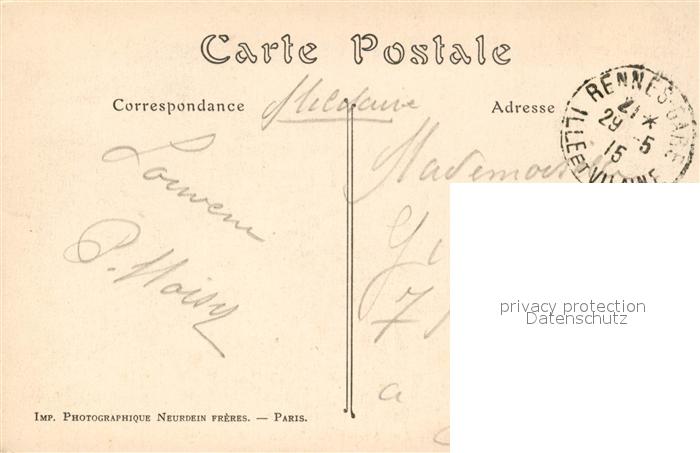 Carte Postale
Correspondance Militaire Adresse
RENNES-GARE
21*
29-5
15
ILLE ET VILAINE
Mademoiselle
Souvenir
P. Noisy
7
a
privacy protection
Datenschutz
IMP. PHOTOGRAPHIQUE NEURDEIN FRÈRES. — PARIS.